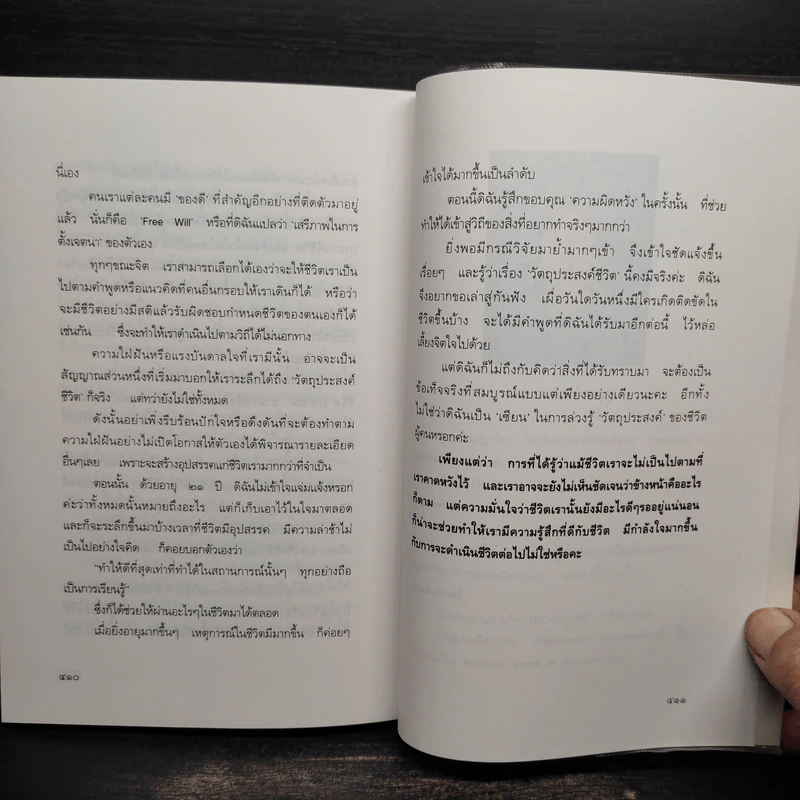 นี่เอง
คนเราแต่ละคนมี 'ของดี' ที่สำคัญอีกอย่างที่ติดตัวมาอยู่
แล้ว นั่นก็คือ 'Free Will' หรือที่ดิฉันแปลว่า 'เสรีภาพในการ
ตั้งเจตนา' ของตัวเอง
ทุกๆขณะจิต เราสามารถเลือกได้เองว่าจะให้ชีวิตเราเป็น
ไปตามคำพูดหรือแนวคิดที่คนอื่นกรอบให้เราเดินก็ได้ หรือว่า
จะมีชีวิตอย่างมีสติแล้วรับผิดชอบกำหนดชีวิตของตนเองก็ได้
เช่นกัน ซึ่งจะทำให้เราดำเนินไปตามวิถีได้ไม่นอกทาง
ความใฝ่ฝันหรือแรงบันดาลใจที่เรามีนั้น อาจจะเป็น
สัญญาณส่วนหนึ่งที่เริ่มมาบอกให้เราระลึกได้ถึง 'วัตถุประสงค์
ชีวิต' ก็จริง แต่ทว่ายังไม่ใช่ทั้งหมด
ดังนั้นอย่าเพิ่งรีบร้อนปักใจหรือดึงดันที่จะต้องทำตาม
ความใฝ่ฝันอย่างไม่เปิดโอกาสให้ตัวเองได้พิจารณารายละเอียด
อื่นๆเลย เพราะจะสร้างอุปสรรคแก่ชีวิตเรามากกว่าที่จำเป็น
ตอนนั้น ด้วยอายุ ๒๑ ปี ดิฉันไม่เข้าใจแจ่มแจ้งหรอก
ค่ะว่าทั้งหมดนั้นหมายถึงอะไร แต่ก็เก็บเอาไว้ในใจมาตลอด
และก็จะระลึกขึ้นมาบ้างเวลาที่ชีวิตมีอุปสรรค มีความล่าช้าไม่
เป็นไปอย่างใจคิด ก็คอยบอกตัวเองว่า
"ทำให้ดีที่สุดเท่าที่ทำได้ในสถานการณ์นั้นๆ ทุกอย่างถือ
เป็นการเรียนรู้"
ซึ่งก็ได้ช่วยให้ผ่านอะไรๆในชีวิตมาได้ตลอด
เมื่อยิ่งอายุมากขึ้นๆ เหตุการณ์ในชีวิตมีมากขึ้น ก็ค่อยๆ
๔๑๐
เข้าใจได้มากขึ้นเป็นลำดับ
ตอนนี้ดิฉันรู้สึกขอบคุณ 'ความผิดหวัง' ในครั้งนั้น ที่ช่วย
ทำให้ได้เข้าสู่วิถีของสิ่งที่อยากทำจริงๆมากกว่า
ยิ่งพอมีกรณีวิจัยมาย้ำมากๆเข้า จึงเข้าใจชัดแจ้งขึ้น
เรื่อยๆ และรู้ว่าเรื่อง 'วัตถุประสงค์ชีวิต' นี้คงมีจริงค่ะ ดิฉัน
จึงอยากขอเล่าสู่กันฟัง เผื่อวันใดวันหนึ่งมีใครเกิดติดขัดใน
ชีวิตขึ้นบ้าง จะได้มีคำพูดที่ดิฉันได้รับมาอีกต่อนี้ ไว้หล่อ
เลี้ยงจิตใจไปด้วย
แต่ดิฉันก็ไม่ถึงกับคิดว่าสิ่งที่ได้รับทราบมา จะต้องเป็น
ข้อเท็จจริงที่สมบูรณ์แบบแต่เพียงอย่างเดียวนะคะ อีกทั้ง
ไม่ใช่ว่าดิฉันเป็น 'เซียน' ในการล่วงรู้ 'วัตถุประสงค์' ของชีวิต
ผู้คนหรอกค่ะ
เพียงแต่ว่า การที่ได้รู้ว่าแม้ชีวิตเราจะไม่เป็นไปตามที่
เราคาดหวังไว้ และเราอาจจะยังไม่เห็นชัดเจนว่าข้างหน้าคืออะไร
ก็ตาม แต่ความมั่นใจว่าชีวิตเรานั้นยังมีอะไรดีๆรออยู่แน่นอน
ก็น่าจะช่วยทำให้เรามีความรู้สึกที่ดีกับชีวิต มีกำลังใจมากขึ้น
กับการจะดำเนินชีวิตต่อไปไม่ใช่หรือคะ
๔๑๑